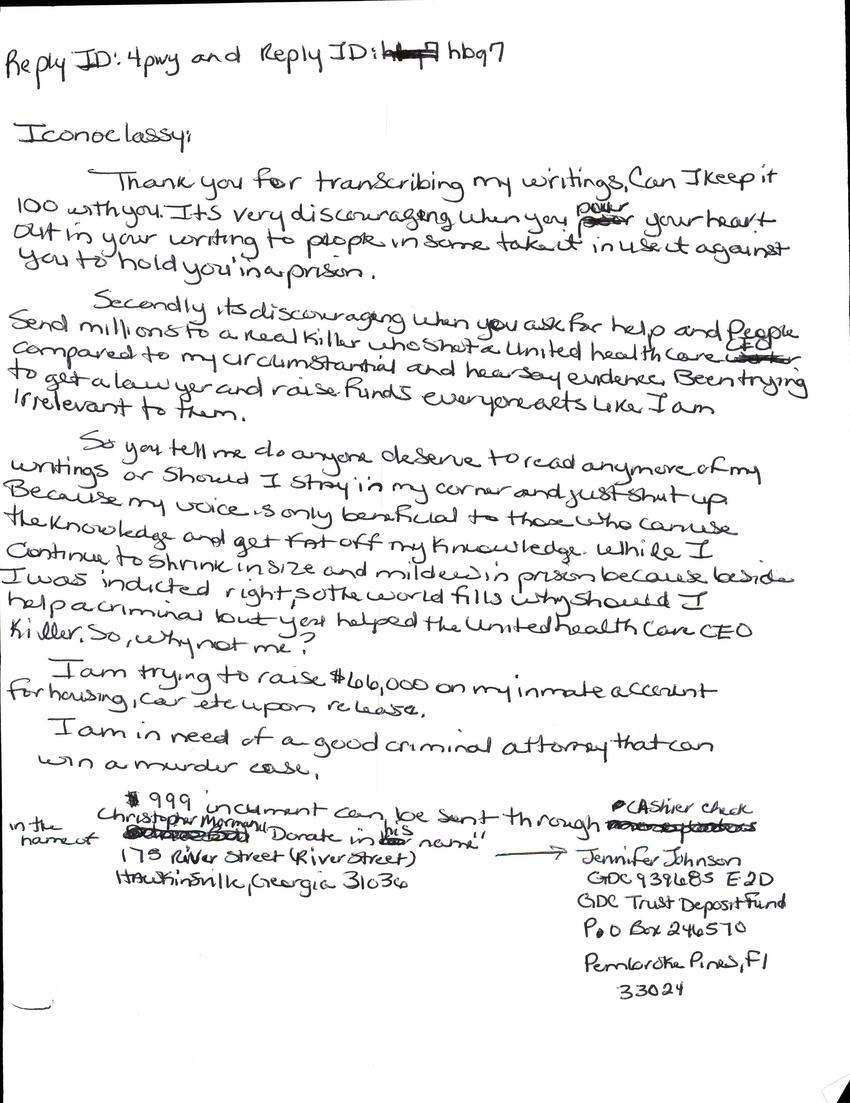 Reply ID: 4pwy and Reply ID: hbq7
Iconoclassy:
Thank you for transcribing my writings, Can I keep it
100 with you. It's very discouraging when you pour your heart
out in your writing to people in some take it in use it against
you to hold you in a prison.
Secondly its discouraging when you ask for help and People
Send millions to a real killer who shot a United health care CEO
compared to my circumstantial and hearsay evidence. Been trying
to get a lawyer and raise funds everyone acts like I am
irrelevant to them.
So you tell me do anyone deserve to read anymore of my
writings or should I stay in my corner and just shut up
Because my voice is only beneficial to those who can use
the knowledge and get fat off my knowledge. While I
Continue to shrink in size and mildew in prison because beside
I was indicted right, so the world fills why should I
help a criminal but yet helped the United health Care CEO
Killer. So, why not me?
I am trying to raise $66,000 on my inmate account
for housing, car etc upon release.
I am in need of a good criminal attorney that can
win a murder case.
$999 incument can be sent through CAShier check
in the name of Christopher "Donate in his name"
175 River Street (River Street)
Hawkinsville, Georgia 31036
Jennifer Johnson
GDC 939685 E2D
GDC Trust Deposit Fund
P.O Box 246570
Pembroke Pines, Fl
33024